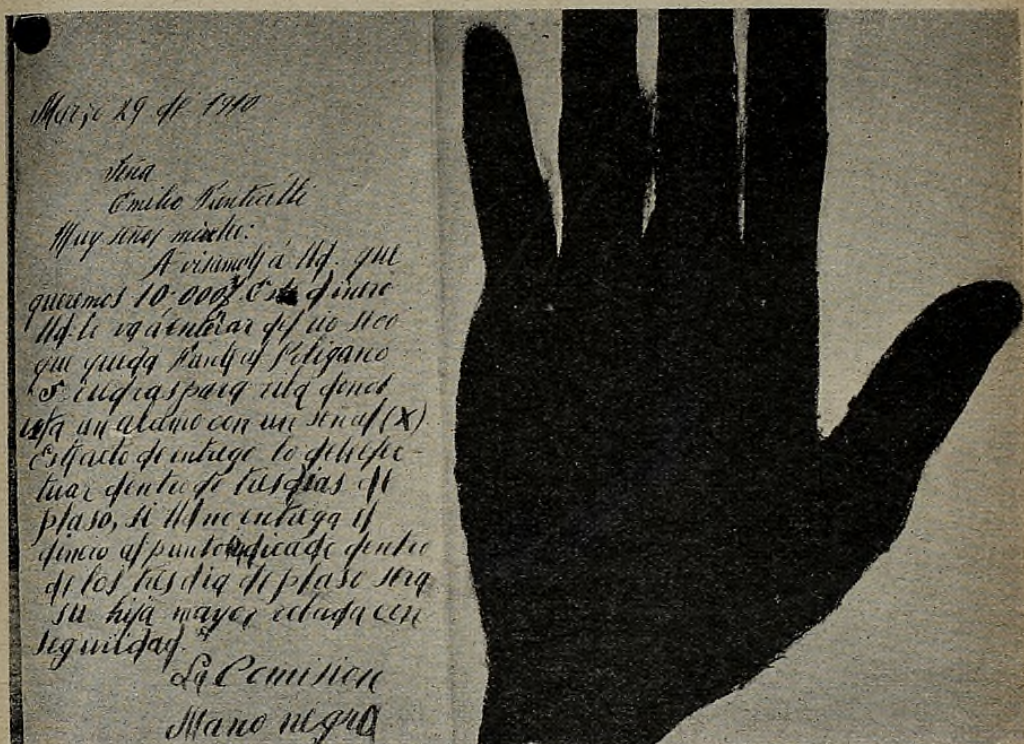 Marzo 29 de 1910
Emilio
Muy señor
Avisamos á Ud. que
queremos 10.000$ Este dinero
Ud. lo va á enterar del rio seco
que queda Poligano
5.
esta un alamo con un señal (X)
Este acto de entrega lo
tuar dentro de tres dias de
plaso, si Ud no entrega el
dinero al punto dentro
de los tres dia de plaso sera
su hija mayor robada con
seguridad.
La Comision
Mano negra